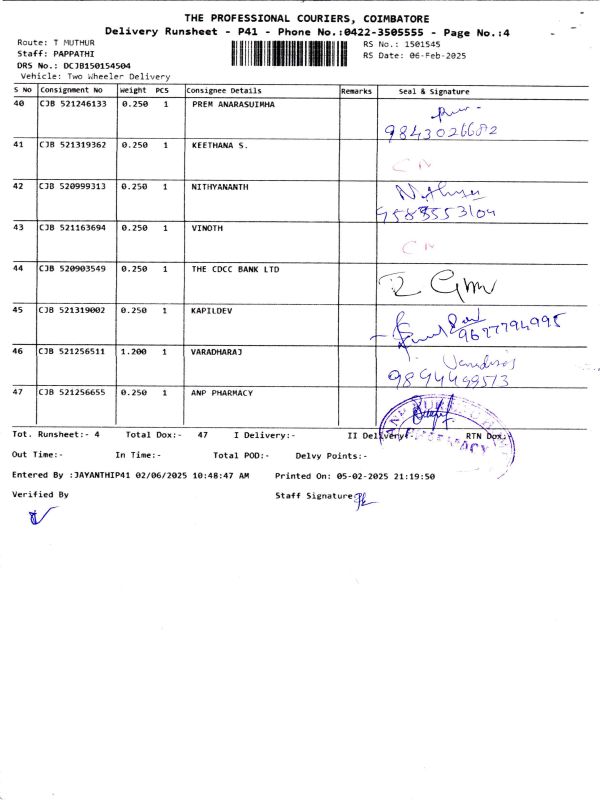 THE PROFESSIONAL COURIERS, COIMBATORE
Delivery Runsheet - P41 - Phone No.:0422-3505555 - Page No.:4
Route: T MUTHUR
RS No.: 1501545
Staff: PAPPATHI
RS Date: 06-Feb-2025
DRS No.: DCJB150154504
Vehicle: Two Wheeler Delivery
S No Consignment No Weight PCS Consignee Details Remarks Seal & Signature
40 CJB 521246133 0.250 1 PREM ANARASUIMHA
9843026682
41 CJB 521319362 0.250 1 KEETHANA S.
CN
42 CJB 520999313 0.250 1 NITHYANANTH
43 CJB 521163694 0.250 1 VINOTH
CN
44 CJB 520903549 0.250 1 THE CDCC BANK LTD
45 CJB 521319002 0.250 1 KAPILDEV
9677794995
46 CJB 521256511 1.200 1 VARADHARAJ
9894499573
47 CJB 521256655 0.250 1 ANP PHARMACY
Tot. Runsheet:- 4 Total Dox:- 47 I Delivery:- II Delivery:- RTN Dox:-
Out Time:- In Time:- Total POD:- Delvy Points:-
Entered By :JAYANTHIP41 02/06/2025 10:48:47 AM Printed On: 05-02-2025 21:19:50
Verified By Staff Signature